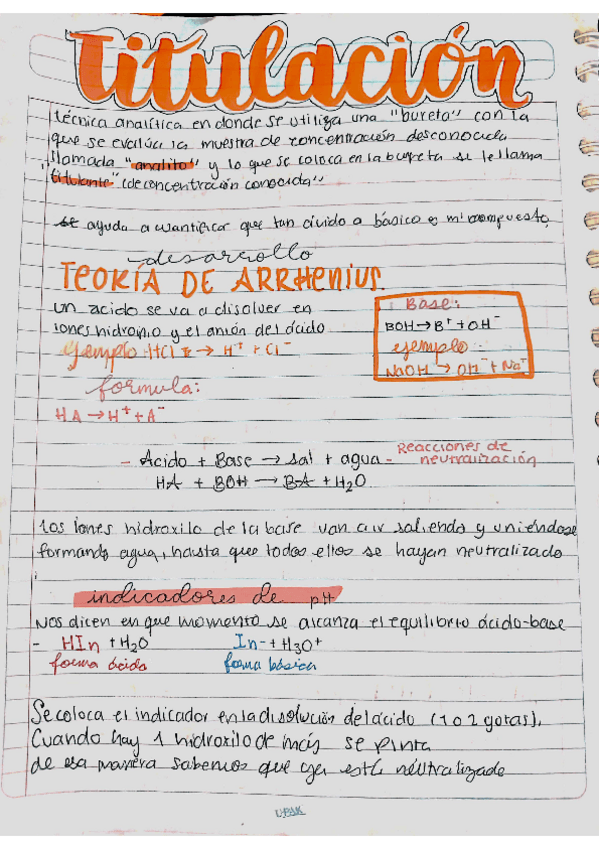 Titulación
técnica analítica en donde se utiliza una "bureta" con la
que se evalúa la muestra de concentración desconocida
llamada "analito" y lo que se coloca en la bureta se le llama
"titulante" (de concentración conocida"
se ayuda a cuantificar que tan ácido a básico es mi compuesto,
desarrollo
TEORÍA DE ARRHENIUS
un acido se va a disolver en
iones hidronio y el anión del ácido
ejemplo: HCl → H⁺ + Cl⁻
Base:
BOH → B⁺ + OH⁻
ejemplo:
NaOH → OH⁻ + Na⁺
formula:
HA → H⁺ + A⁻
- Ácido + Base → sal + agua - Reacciones de
neutralización
HA + BOH → BA + H₂O
los iones hidroxilo de la base van a ir saliendo y uniéndose
formando agua, hasta que todos ellos se hayan neutralizado
indicadores de pH
Nos dicen en que momento se alcanza el equilibrio ácido-base
- HIn + H2O In- + H3O+
forma ácida forma básica
Se coloca el indicador en la disolución del ácido (1 o 2 gotas).
Cuando hay 1 hidroxilo de más se pinta
de esa manera sabemos que ya está neutralizado